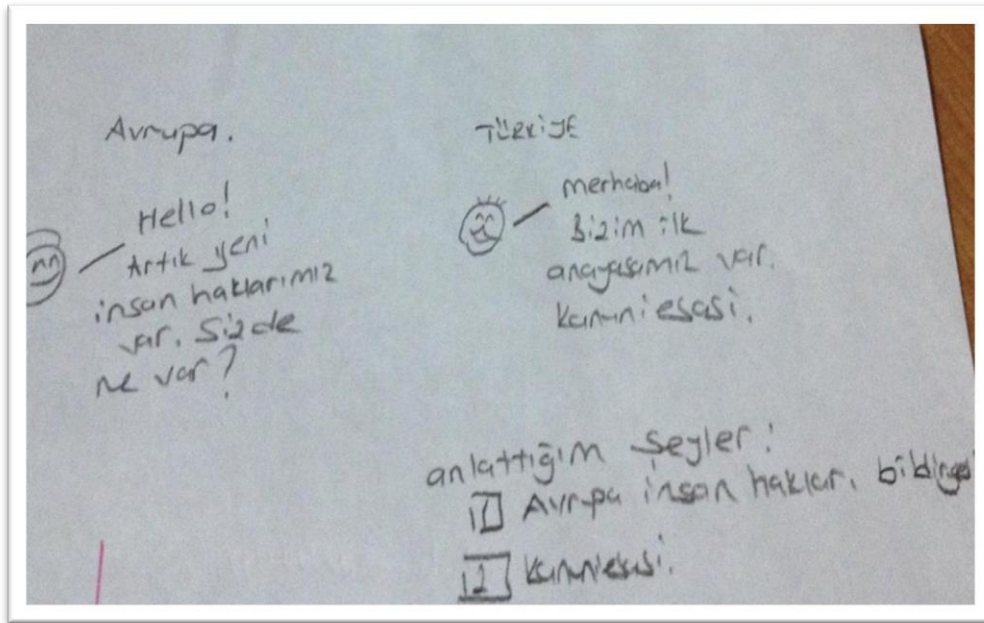 Avrupa.
Hello!
Artık yeni
insan haklarımız
var. Sizde
ne var?
TÜRKİYE
merhaba!
Bizim ilk
anayasamız var.
kanuniesasi.
anlattığım şeyler:
1 Avrupa insan hakları bildirgesi
2 kanuniesasi.